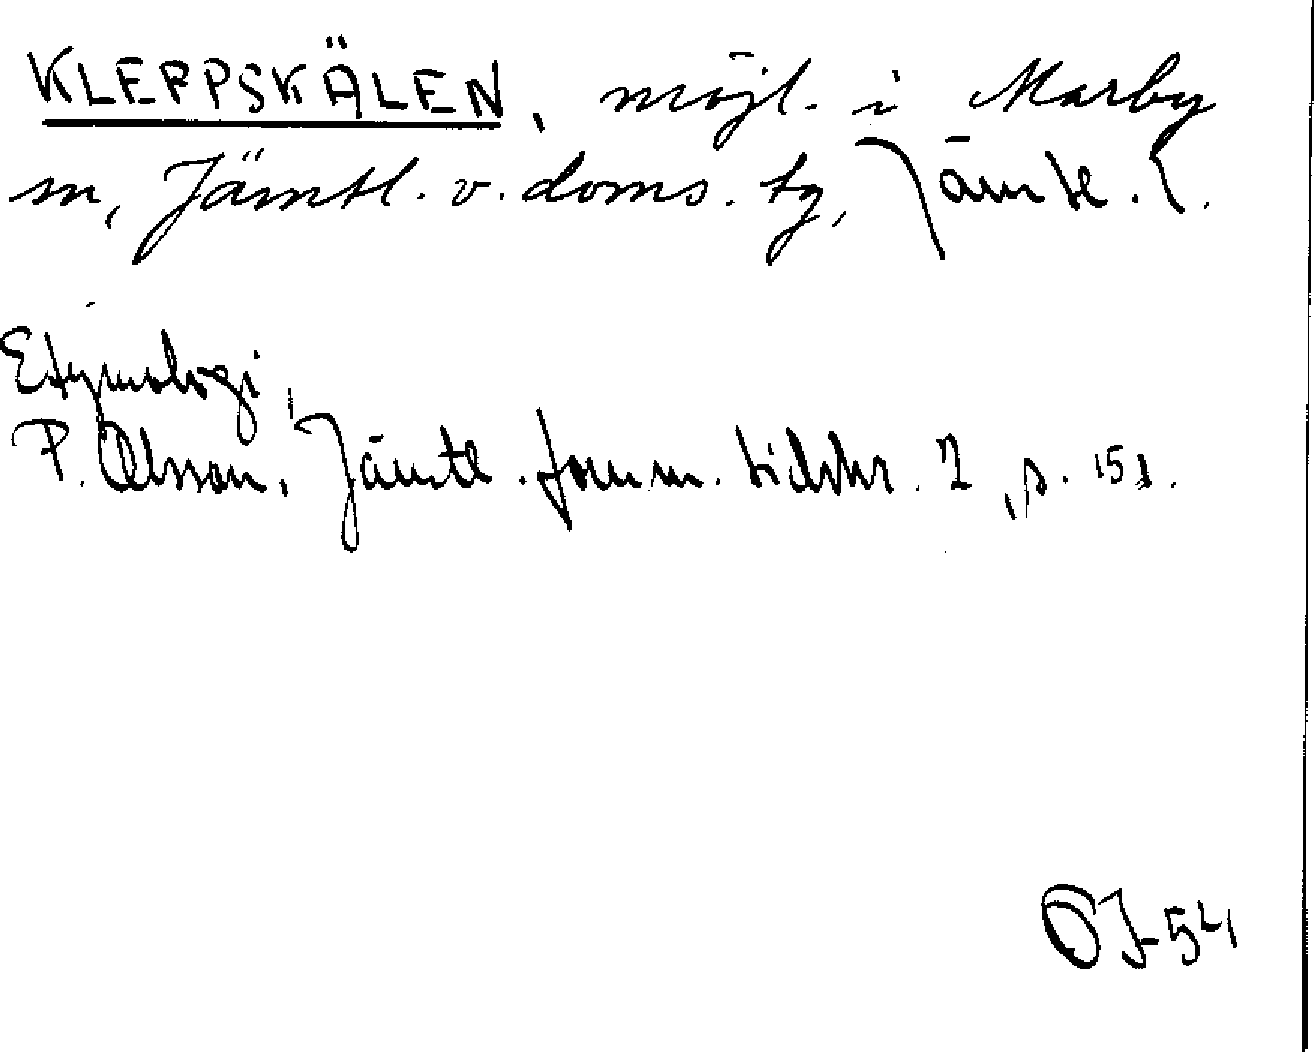 KLEPPSKÄLEN, möjl. i Marby
sn, Jämtl. v. doms. tg, Jämtl. l.
Etymologi,
P. Olsson, Jämtl. fornm. tidskr. 2, s. 151.
ÖJ-54